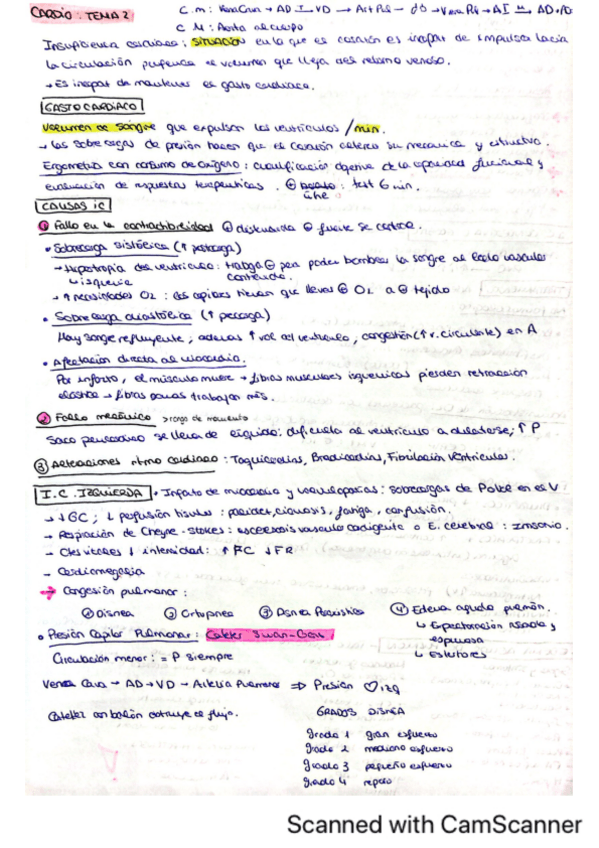 CARDIO: TEMA 2
C.m: Vena Cava → AD → VD → Art Pul → → Vena Pul → AI → AD+AO
C M: Aorta al cuerpo
Insuficiencia cardiaca: SITUACIÓN en la que el corazón es incapaz de impulsar hacia
la circulación periférica el volumen que llega del retorno venoso.
→ Es incapaz de mantener el gasto cardiaco.
GASTO CARDIACO
Volumen de sangre que expulsan los ventrículos /min.
→ Las sobrecargas de presión hacen que el corazón altere su mecánica y estructura.
Ergometría con consumo de oxígeno: cuantificación objetiva de la capacidad funcional y
evaluación de respuestas terapéuticas. test 6 min.
CAUSAS IC
① Fallo en la contractibilidad distensión fuerte se contrae.
• Sobrecarga sistólica (↑ postcarga)
→ Hipertrofia del ventrículo: trabaja ⊕ para poder bombear la sangre al lecho vascular
↳ isquemia
→ ↑ necesidades O2: los capilares tienen que llevar ⊕ O2 a ⊕ tejido
• Sobrecarga diastólica (↑ precarga)
Hay sangre refluyente, además ↑ vol del ventrículo, congestión (↑ v. circulante) en A
• Afectación directa al miocardio.
Por infarto, el músculo muere → fibras musculares isquémicas pierden retracción
elástica → fibras sanas trabajan más.
② Fallo mecánico
Saco pericardico se llena de líquido: dificulta al ventrículo a dilatarse; ↑ P
③ Alteraciones ritmo cardiaco: Taquicardias, Bradicardias, Fibrilación Ventricular.
I.C. IZQUIERDA • Infarto de miocardio y valvulopatías: sobrecargas de P o Vol en el V
→ ↓ GC; ↓ perfusión tisular: palidez, cianosis, fatiga, confusión.
→ Respiración de Cheyne-Stokes: esclerosis vascular consiguiente a E. cerebral: Insomnio.
→ intensidad: ↑ FC ↓ FR
→ Cardiomegalia
→ Congestión pulmonar:
① Disnea ② Ortopnea ③ Disnea Paroxística ④ Edema agudo pulmón.
↳ Expectoración rosada y
espumosa
↳ Estertores
• Presión Capilar Pulmonar: Catéter Swan-Ganz
Circulación menor: = P siempre
Vena Cava → AD → VD → Arteria Pulmonar ⇒ Presión ♡ izq
Catéter con balón obtruye el flujo.
GRADOS DISNEA
Grado 1 gran esfuerzo
Grado 2 mediano esfuerzo
grado 3 pequeño esfuerzo
grado 4 reposo
Scanned with CamScanner